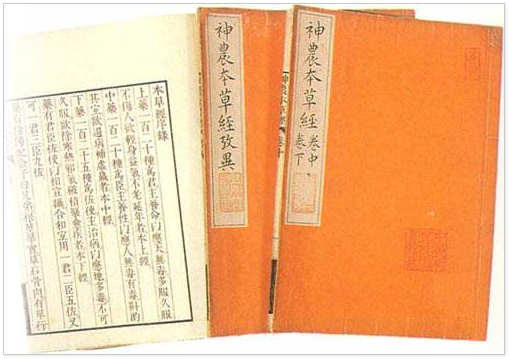 神農本草經 卷中、
卷下
神農本草經攷異
本草經序錄
上藥一百二十種為君主養命㠯應天無毒多服久服
不傷人欲輕身益氣不老延年者本上經
中藥一百二十種為臣主養性㠯應人無毒有毒斟酌
其宜欲遏病補虛羸者本中經
下藥一百二十五種為佐使主治病㠯應地多毒不可
久服欲除寒熱邪氣破積聚愈疾者本下經
藥有君臣佐使㠯相宣攝合和宜用一君二臣五佐又
可一君三臣九佐
藥有陰陽配合子母兄弟根莖華實草石骨肉有單行